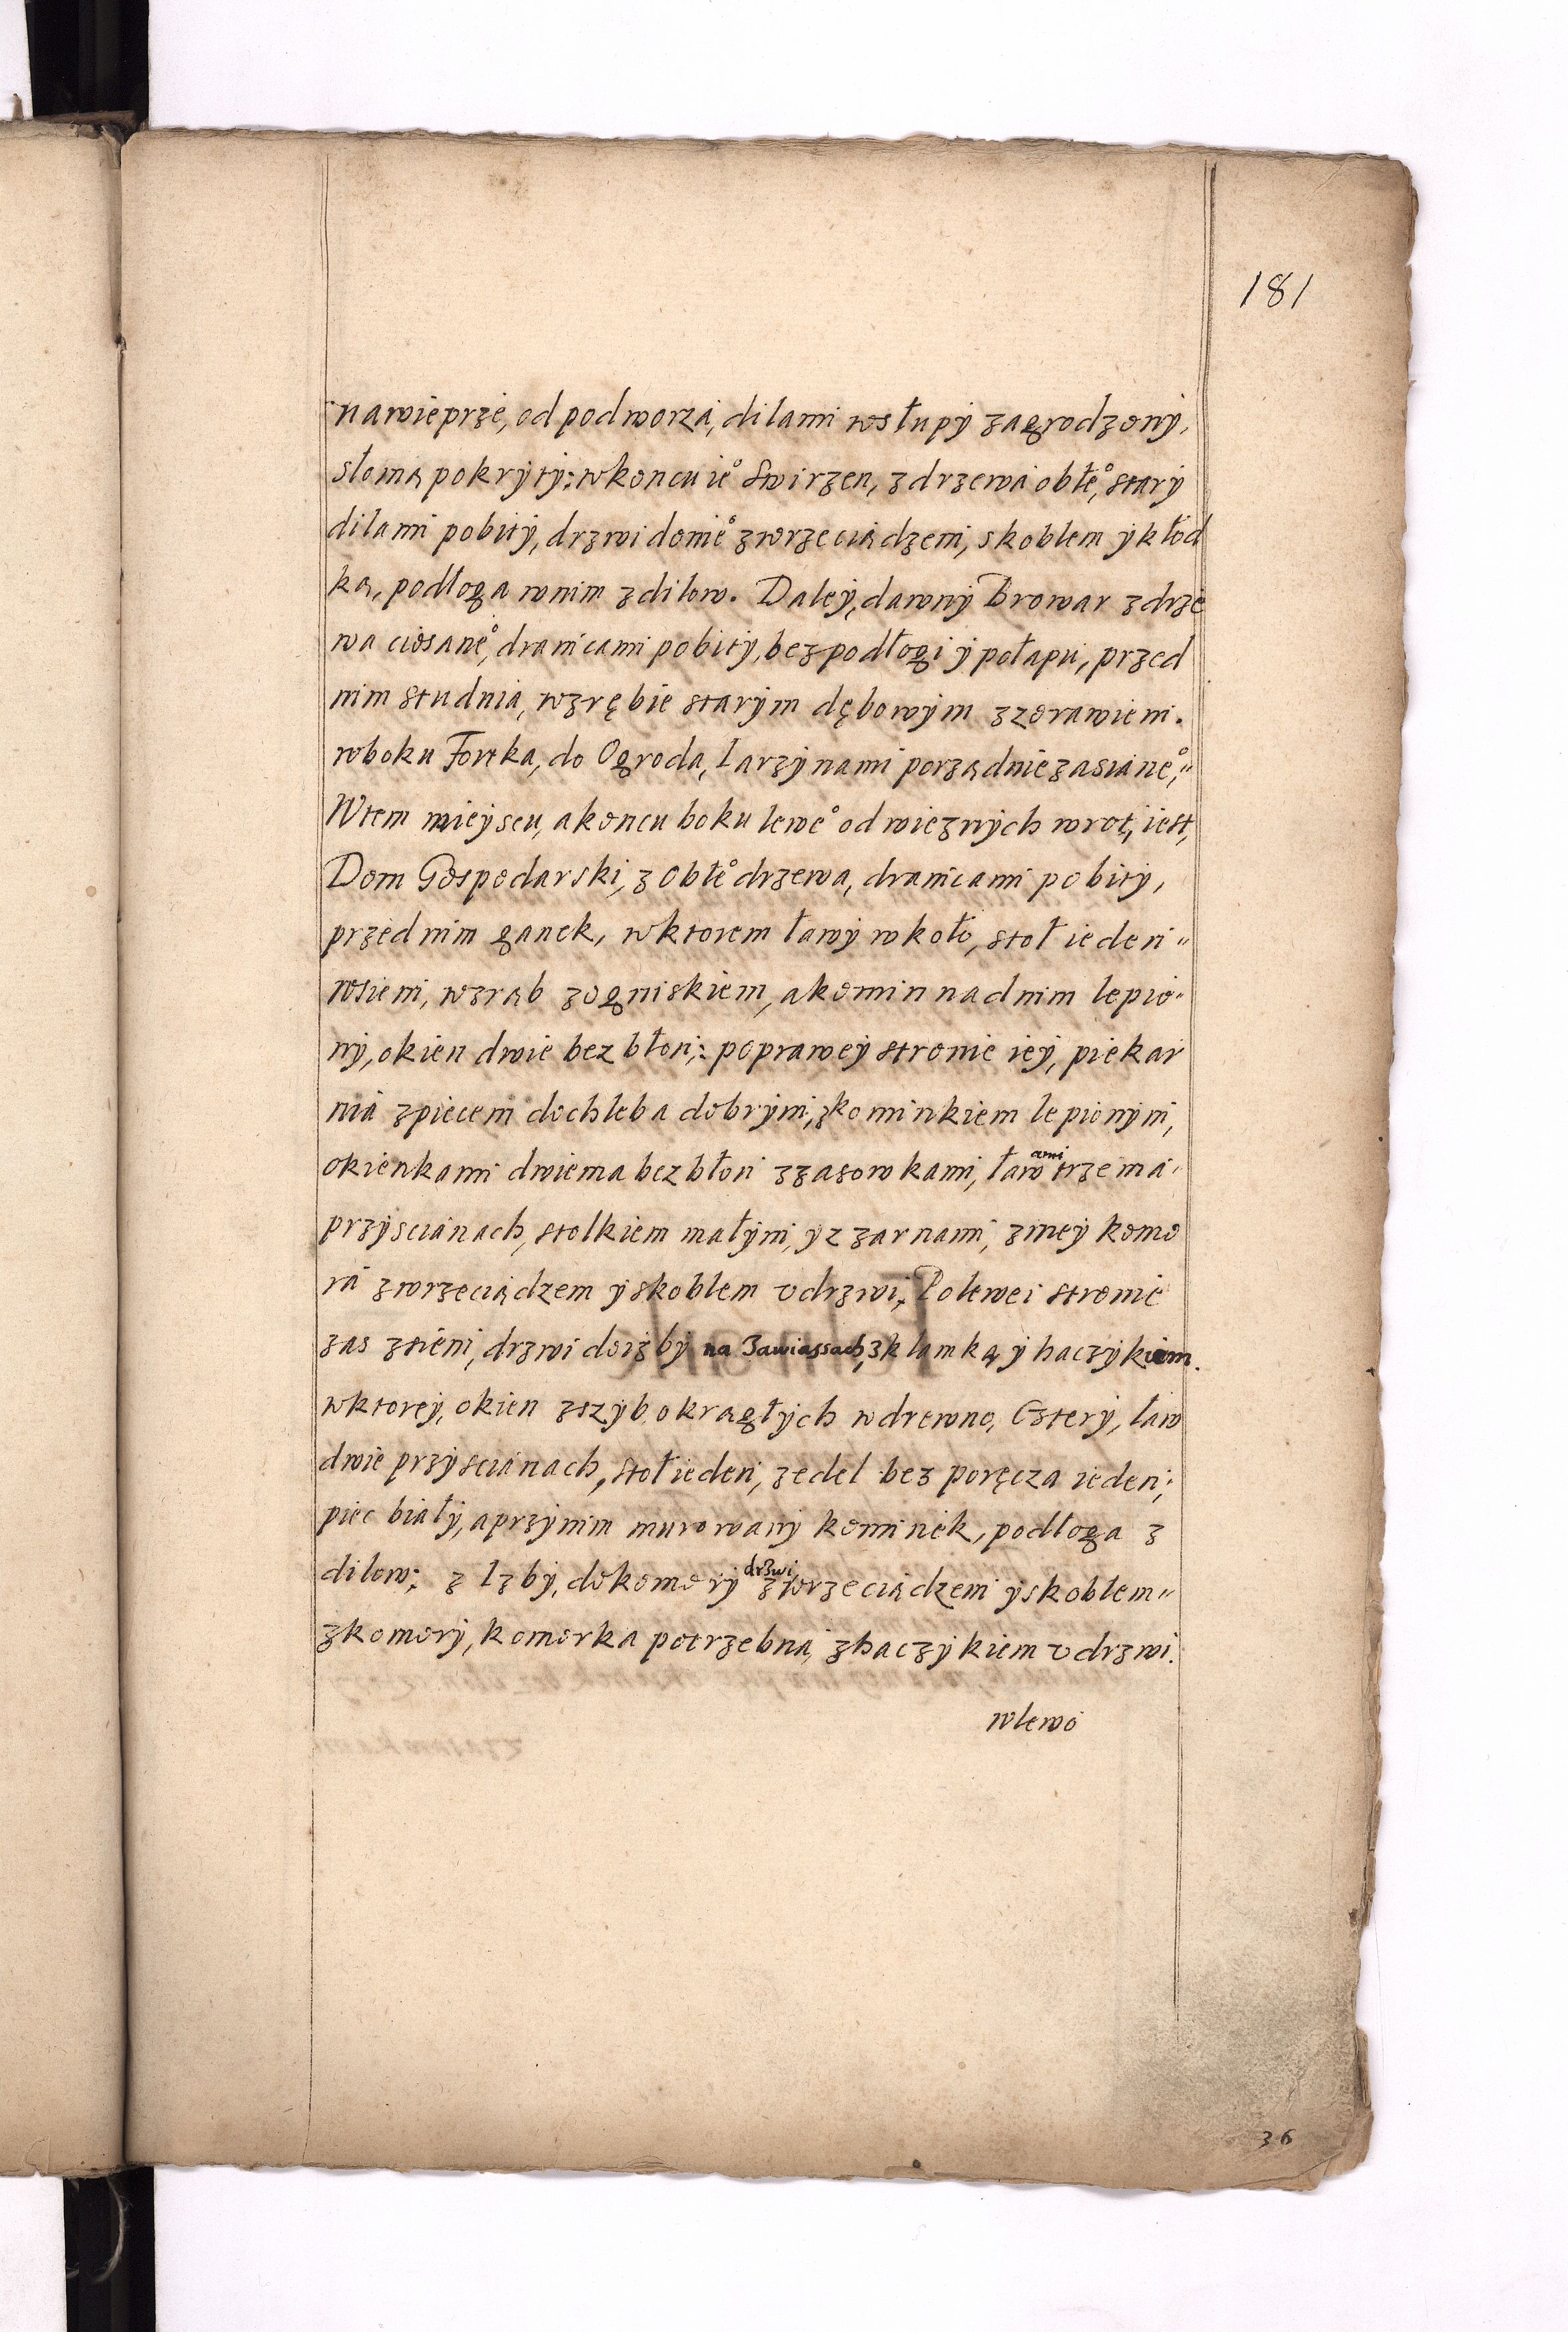 181
na wieprze, od podworza, dilami w słupy zagrodzony,
słomą pokryty; w koncu ie° Swirzen, z drzewa obłe°, stary
dilami pobity, drzwi do nie° z wrzeciądzem, skoblem y kłod
ką, podłoga w nim z dilow. Daley, dawny Browar z drze
wa ciosane°, dranicami pobity, bez podłogi y połapu, przed
nim studnia, w zrębie starym dębowym z zorawiem.
w boku Fortka, do Ogroda, Iarzynami porządnie zasiane°,"
W tem mieyscu, a koncu boku lewe° od wieznych wrot, iest,
Dom Gospodarski, z Obłe° drzewa, dranicami pobity,
przed nim ganek, w ktorem ławy w koło, stoł ieden"
w sieni, w zrąb z ogniskiem, a komin nad nim lepio"
ny, okien dwie bez błon; po prawey stronie iey, piekar
nia z piecem do chleba dobrym, z kominkiem lepionym,
okienkami dwiema bez błon z zasowkami, ławami trzema
przy scianach, stolkiem małym, y z zarnami, z niey komo
ra z wrzeciądzem y skoblem v drzwi, Po lewei stronie
zas z sieni, drzwi do izby na zawiassach, z klamką y haczykiem.
w ktorey, okien z szyb okrągłych w drewno, Cztery, ław
dwie przy scianach, stoł ieden, zedel bez poręcza ieden;
piec biały, a przy nim murowany kominek, podłoga z
dilow; z Izby, do komory drzwi z wrzeciądzem y skoblem"
z komory, komorka potrzebna, z haczykiem v drzwi.
w lewo
36